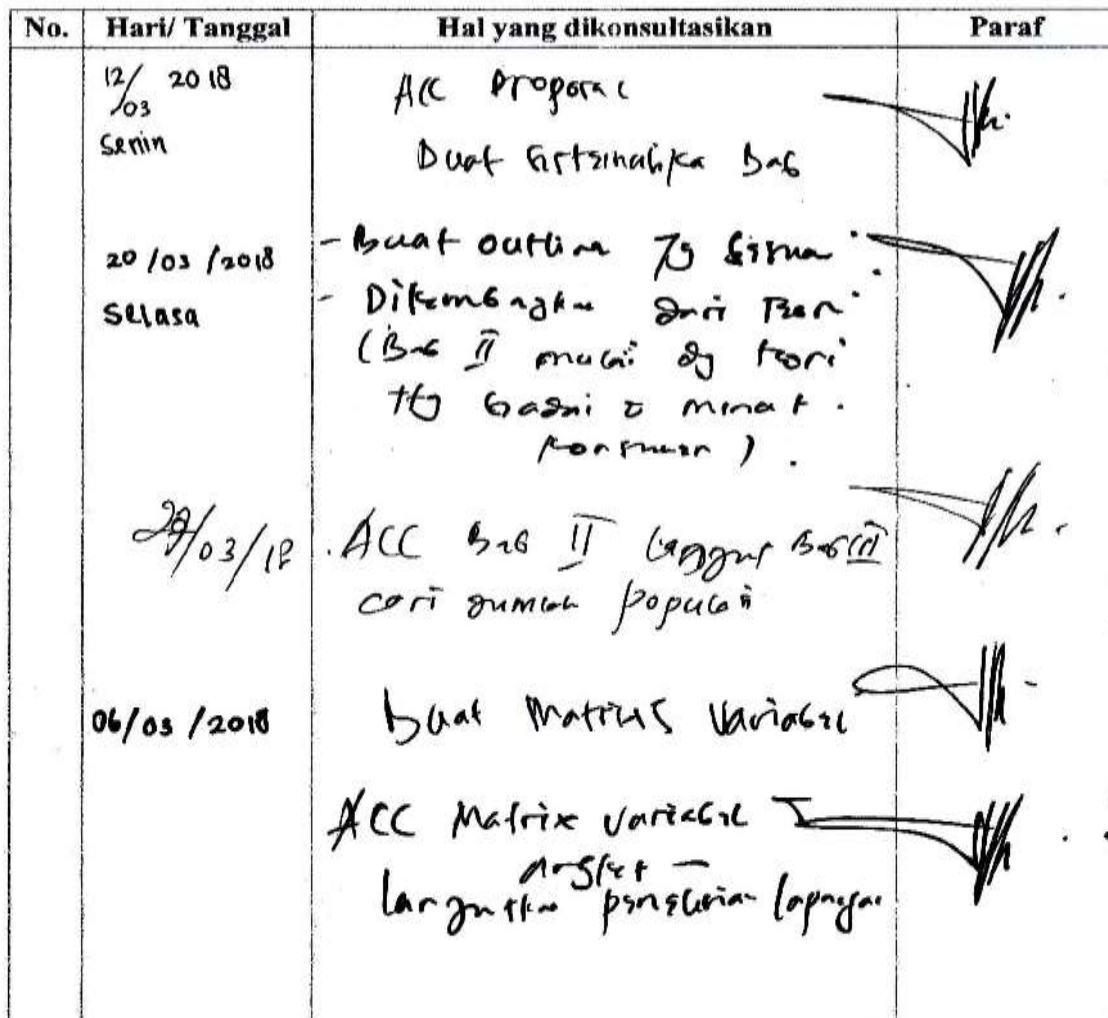 No. Hari/ Tanggal Hal yang dikonsultasikan Paraf
12/03 2018 ACC Proposal
Senin
Buat Sistematika Bab
20/03/2018 - Buat outline yg
Selasa - Dikembangkan dari
(Bab II mulai dg teori
ttg minat
konsumen).
/03/18 ACC Bab II Bab III
cari jumlah populasi
06/03/2018 Buat Matriks Variabel
ACC Matrix Variabel
angket
lanjutkan penelitian lapangan